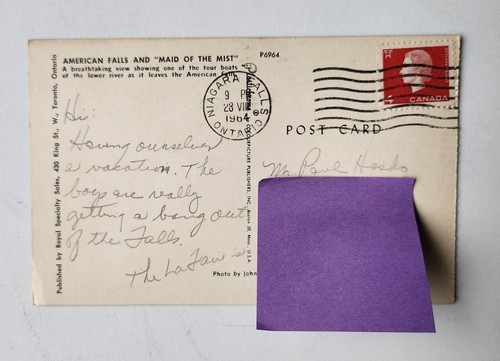 AMERICAN FALLS AND "MAID OF THE MIST"
P6964
A breathtaking view showing one of the tour boats
of the lower river as it leaves the American
Hi:
Having ourselves
a vacation. The
boys are really
getting a bang out
of the Falls.
The
Photo by John
Published by Royal Specialty Sales, 430 King St., W., Toronto, Ontario
NIAGARA FALLS
9 P
28 VII
1964
ONTARIO
CANADA
POST CARD
Mr. Paul